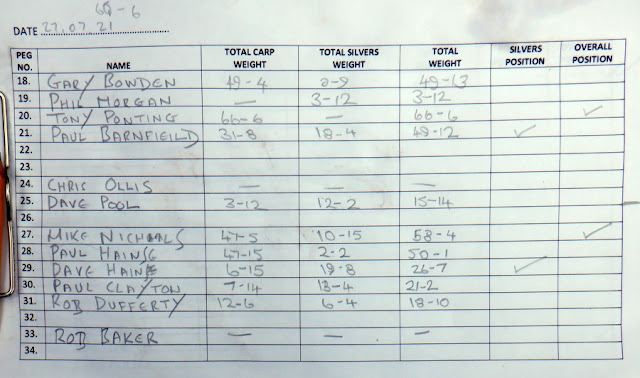 69-6
DATE 27.07.21
PEG NO. NAME TOTAL CARP WEIGHT TOTAL SILVERS WEIGHT TOTAL WEIGHT SILVERS POSITION OVERALL POSITION
18. GARY BOWDEN 49-4 0-9 49-13
19. PHIL MORGAN — 3-12 3-12
20. TONY PONTING 66-6 — 66-6 ✓
21. PAUL BARNFIEILD 31-8 18-4 49-12 ✓
22.
23.
24. CHRIS OLLIS — — —
25. DAVE POOL 3-12 12-2 15-14
26.
27. MIKE NICHOLLS 47-5 10-15 58-4 ✓
28. PAUL HAINSE 47-15 2-2 50-1
29. DAVE HAINE 6-15 19-8 26-7 ✓
30. PAUL CLAYTON 7-14 13-4 21-2
31. ROB DUFFERTY 12-6 6-4 18-10
32.
33. ROB BAKER — — —
34.